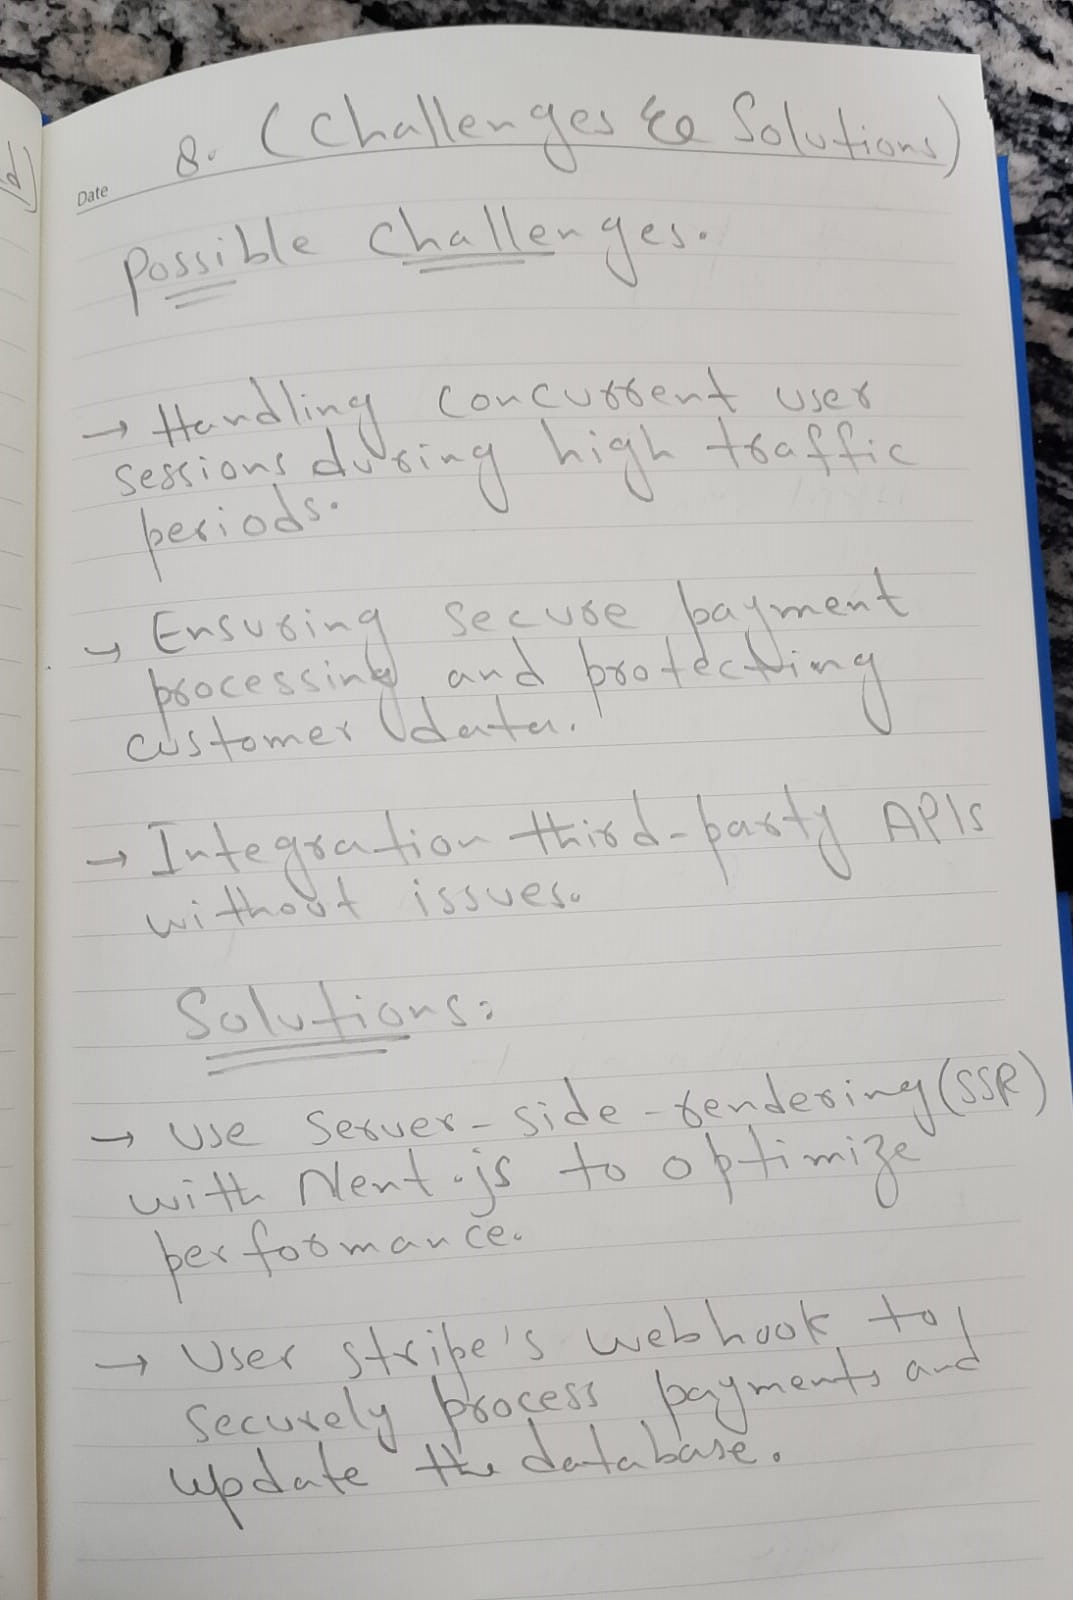 8. (Challenges & Solutions)
Date
Possible Challenges.
→ Handling concurrent user
sessions during high traffic
periods.
→ Ensuring secure payment
processing and protecting
customer data.
→ Integration third-party APIs
without issues.
Solutions:
→ Use Server-side-rendering (SSR)
with Next.js to optimize
performance.
→ User stripe's webhook to
securely process payments and
update the database.